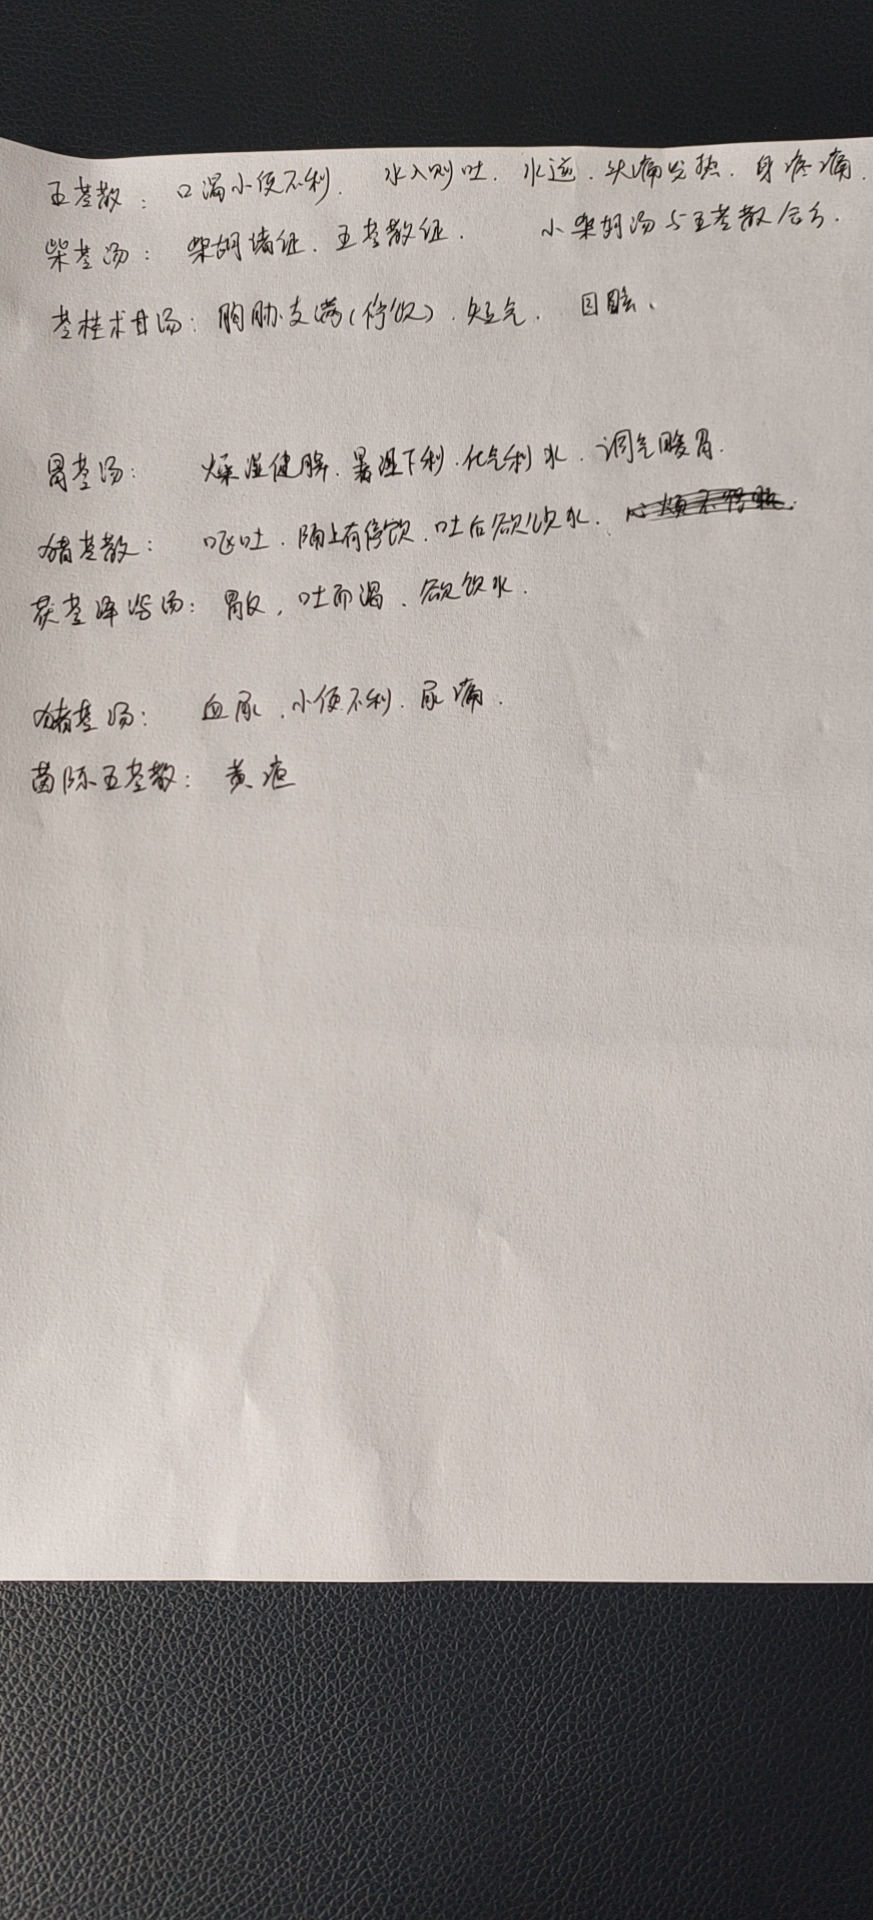 五苓散：口渴小便不利．水入则吐．水逆．头痛发热．身疼痛．
柴苓汤：柴胡诸证．五苓散证．小柴胡汤与五苓散合方．
苓桂术甘汤：胸胁支满（停饮）．短气．目眩．
胃苓汤：燥湿健脾．暑湿下利．化气利水．调气暖胃．
猪苓散：呕吐．膈上有停饮．吐后欲饮水．心烦不得眠．
茯苓泽泻汤：胃反，吐而渴．欲饮水．
猪苓汤：血尿．小便不利．尿痛．
茵陈五苓散：黄疸